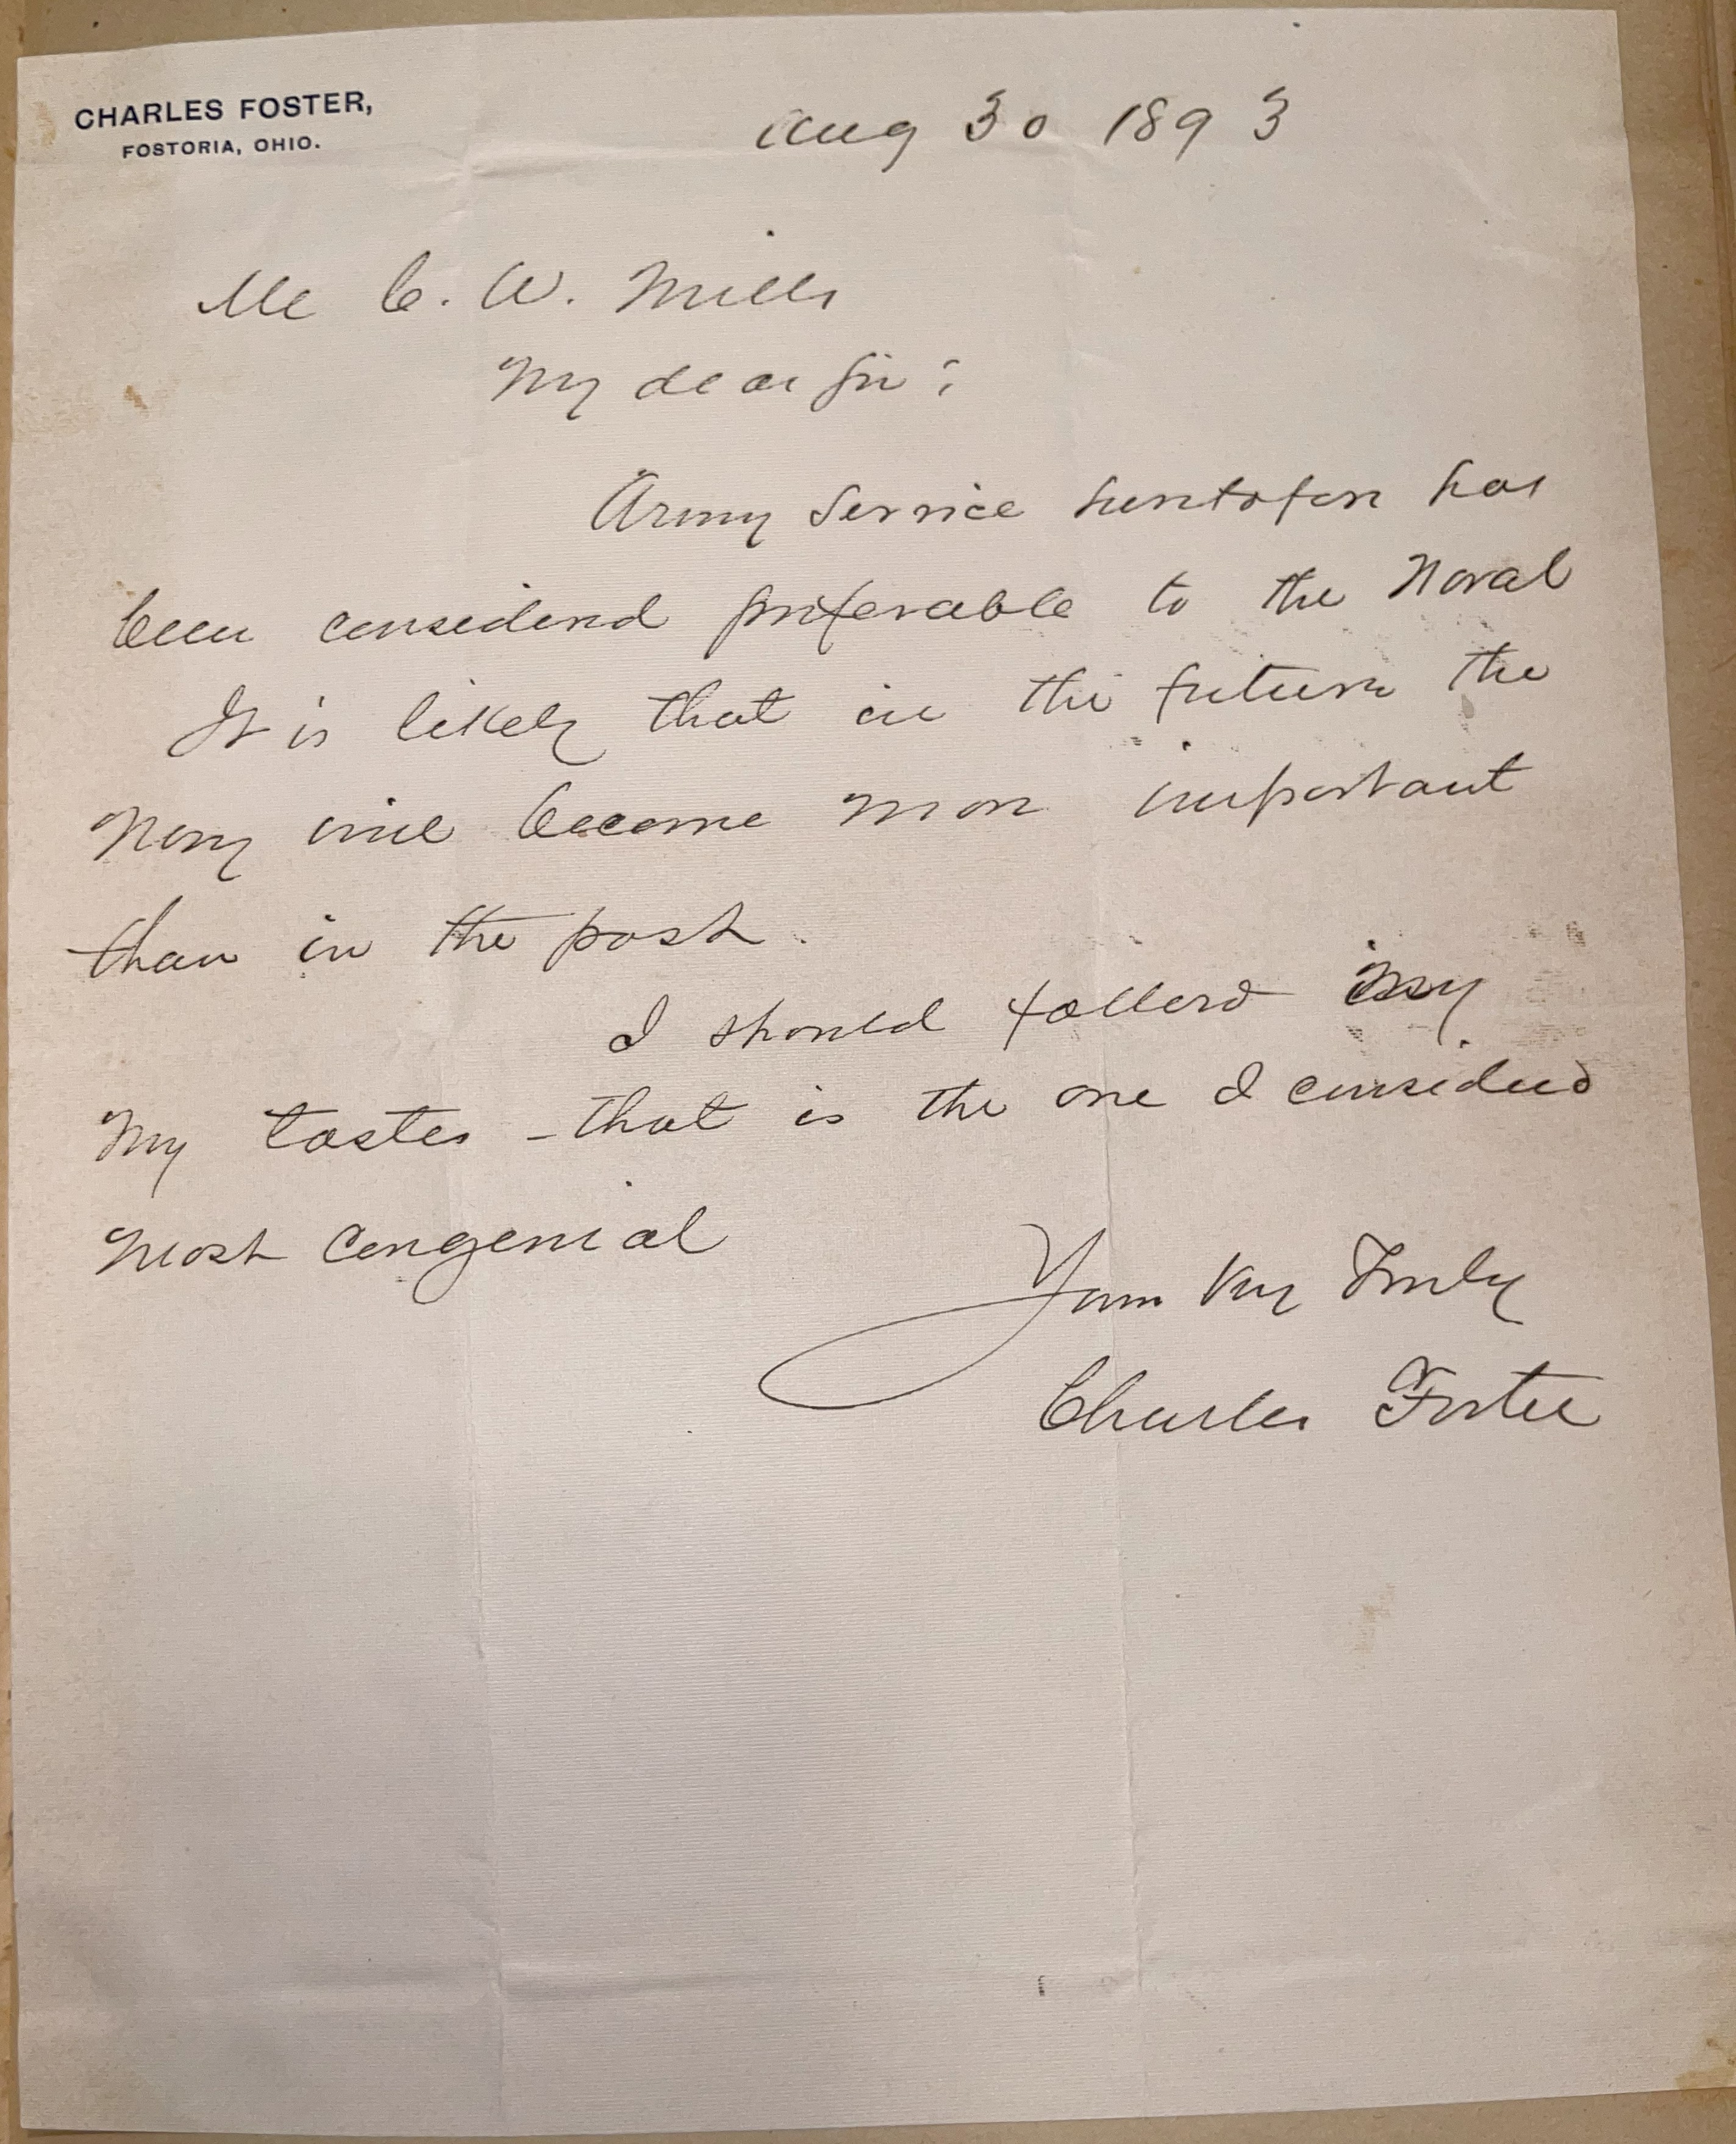 CHARLES FOSTER,
FOSTORIA, OHIO.
Aug 30 1893
Mr C. W. Mills
My dear Sir:
Army Service heretofore has
been considered preferable to the Naval
It is likely that in the future the
Navy will become more important
than in the past.
I should follow my
my tastes - that is the one I considered
most congenial
Yours Very Truly
Charles Foster